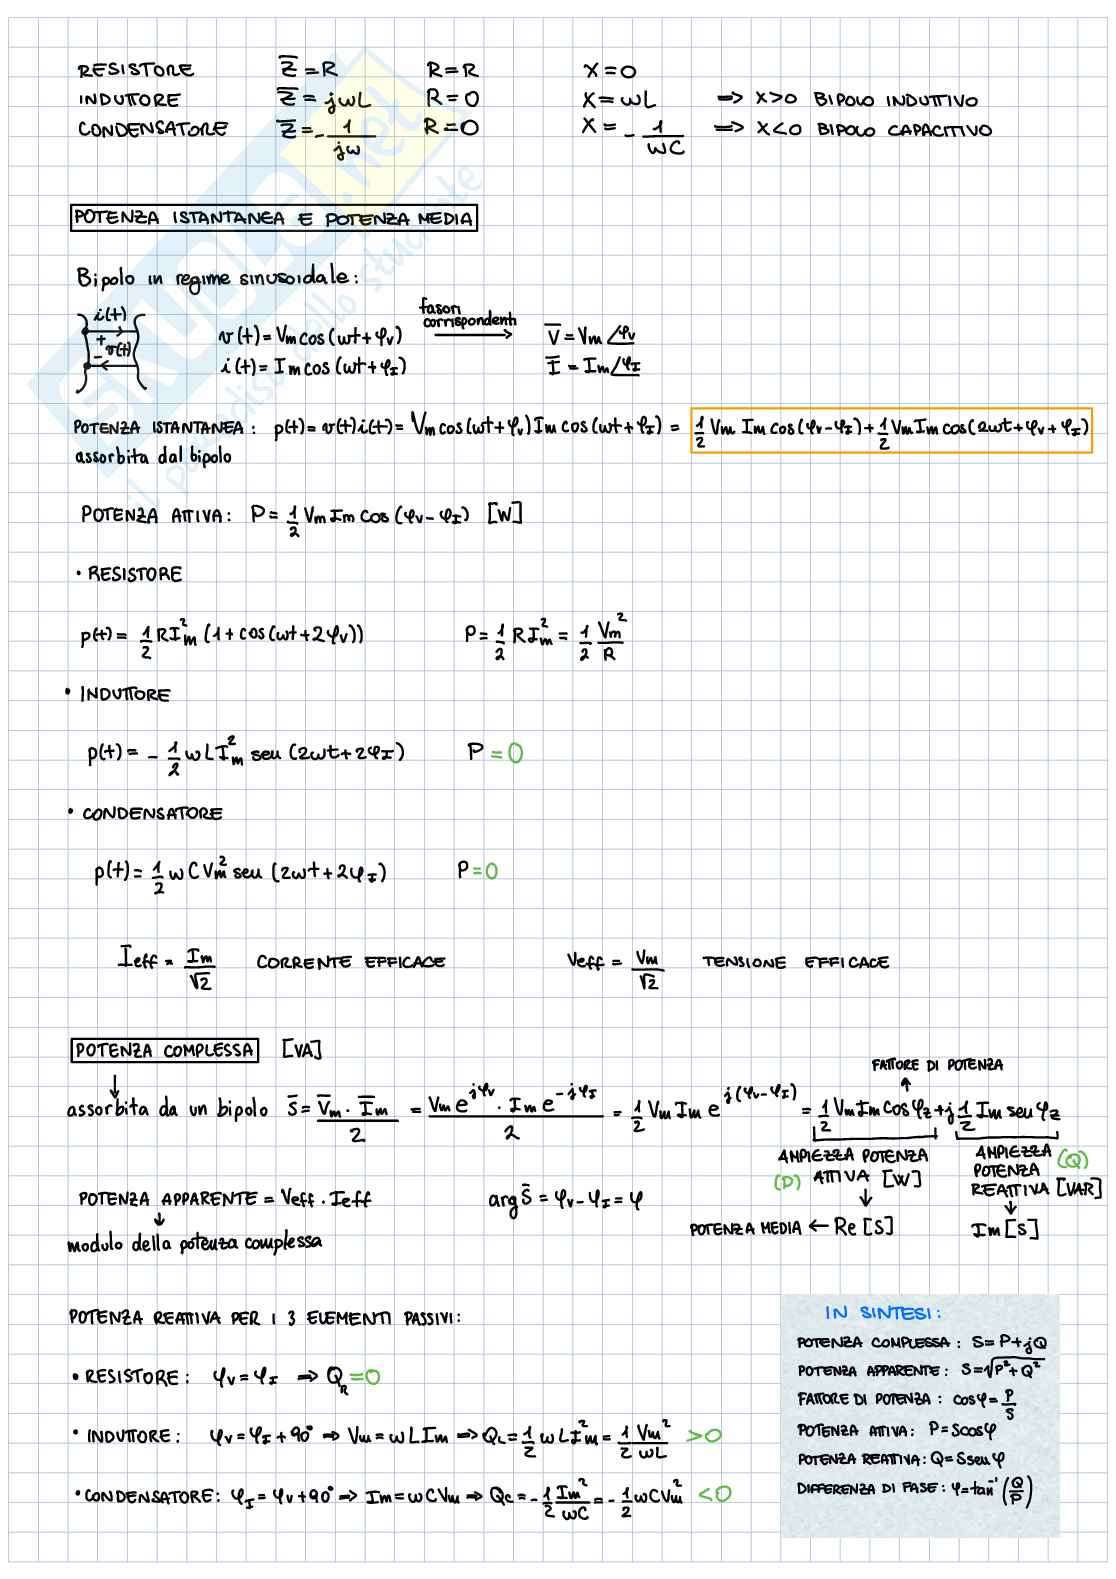 RESISTORE Z̅=R R=R X=0
INDUTTORE Z̅=jωL R=0 X=ωL ⇒ X>0 BIPOLO INDUTTIVO
CONDENSATORE Z̅=-1/jω R=0 X=-1/ωC ⇒ X<0 BIPOLO CAPACITIVO
POTENZA ISTANTANEA E POTENZA MEDIA
Bipolo in regime sinusoidale:
i(t)
+ v(t) -
fasori corrispondenti
v(t)=Vm cos(ωt+φv) → V̅=Vm∠φv
i(t)=Im cos(ωt+φI) I̅=Im∠φI
POTENZA ISTANTANEA: p(t)=v(t)i(t)=Vm cos(ωt+φv)Im cos(ωt+φI)=1/2 Vm Im cos(φv-φI)+1/2 Vm Im cos(2ωt+φv+φI)
assorbita dal bipolo
POTENZA ATTIVA: P=1/2 Vm Im cos(φv-φI) [W]
• RESISTORE
p(t)=1/2 RIm²(1+cos(ωt+2φv)) P=1/2 RIm²=1/2 Vm²/R
• INDUTTORE
p(t)=-1/2 ωLIm² sen(2ωt+2φI) P=0
• CONDENSATORE
p(t)=1/2 ωCVm² sen(2ωt+2φI) P=0
Ieff=Im/√2 CORRENTE EFFICACE Veff=Vm/√2 TENSIONE EFFICACE
POTENZA COMPLESSA [VA]
FATTORE DI POTENZA
assorbita da un bipolo S̅=V̅m·I̅m/2=Vm e^jφv·Im e^-jφI/2=1/2 Vm Im e^j(φv-φI)=1/2 Vm Im cosφz+j1/2 Im senφz
AMPIEZZA POTENZA
(P) ATTIVA [W]
AMPIEZZA (Q)
POTENZA
REATTIVA [VAR]
POTENZA APPARENTE=Veff·Ieff arg S̅=φv-φI=φ
POTENZA MEDIA ← Re[S] Im[S]
modulo della potenza complessa
POTENZA REATTIVA PER I 3 ELEMENTI PASSIVI:
• RESISTORE: φv=φI ⇒ QR=0
• INDUTTORE: φv=φI+90° ⇒ Vm=ωLIm ⇒ QL=1/2 ωLIm²=1/2 Vm²/ωL >0
• CONDENSATORE: φI=φv+90° ⇒ Im=ωCVm ⇒ Qc=-1/2 Im²/ωC=-1/2 ωCVm² <0
IN SINTESI:
POTENZA COMPLESSA: S=P+jQ
POTENZA APPARENTE: S=√P²+Q²
FATTORE DI POTENZA: cosφ=P/S
POTENZA ATTIVA: P=Scosφ
POTENZA REATTIVA: Q=Ssenφ
DIFFERENZA DI FASE: φ=tan⁻¹(Q/P)
SKUOLA.net
il paradiso dello studente